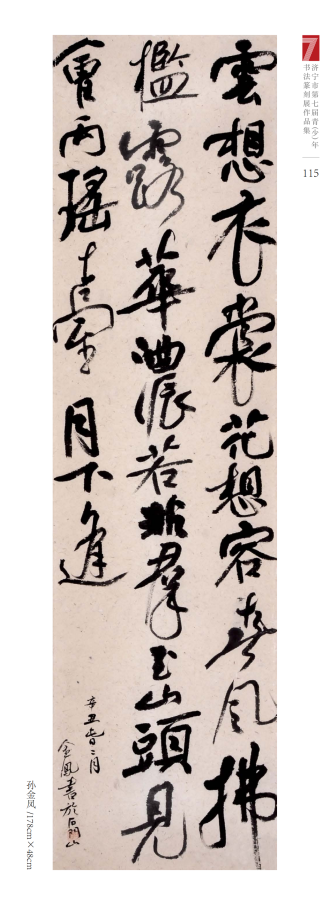 7
济宁市第七届青（少）年
书法篆刻展作品集
115
雲想衣裳花想容春风拂
檻露華濃若非羣玉山頭見
會向瑤臺月下逢
辛丑旾二月
金鳳書於石門山
孙金凤 /178cm×48cm